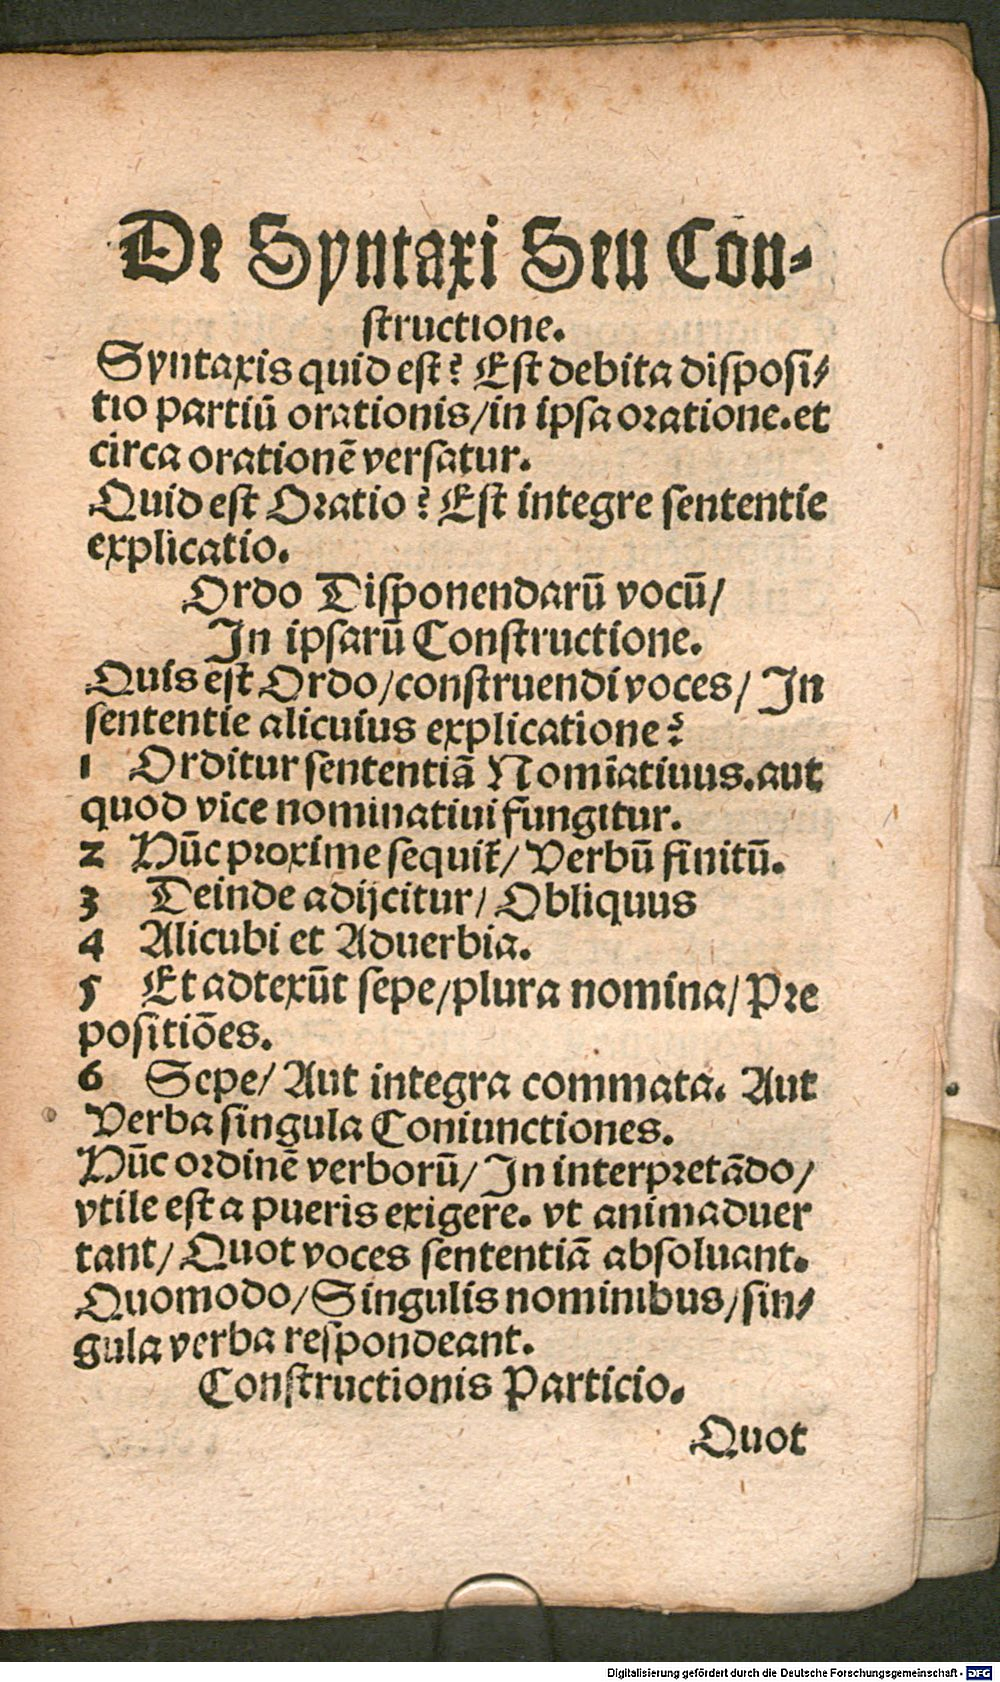 De Syntaxi Seu Con-
structione.
Syntaxis quid est? Est debita disposi/
tio partiū orationis/in ipsa oratione.et
circa orationē versatur.
Quid est Oratio? Est integre sententie
explicatio.
Ordo Disponendarū vocū/
In ipsarū Constructione.
Quis est Ordo/construendi voces/ In
sententie alicuius explicatione?
1 Orditur sententiā Nomīatiuus.aut
quod vice nominatiui fungitur.
2 Nūc proxime sequit̄/ Verbū finitū.
3 Deinde adijcitur/ Obliquus
4 Alicubi et Aduerbia.
5 Et adtexūt sepe/plura nomina/Pre
positiōes.
6 Sepe/ Aut integra commata. Aut
Verba singula Coniunctiones.
Nūc ordinē verborū/ In interpretādo/
vtile est a pueris exigere. vt animaduer
tant/ Quot voces sententiā absoluant.
Quomodo/Singulis nominibus/sin/
gula verba respondeant.
Constructionis Particio.
Quot
Digitalisierung gefördert durch die Deutsche Forschungsgemeinschaft - DFG